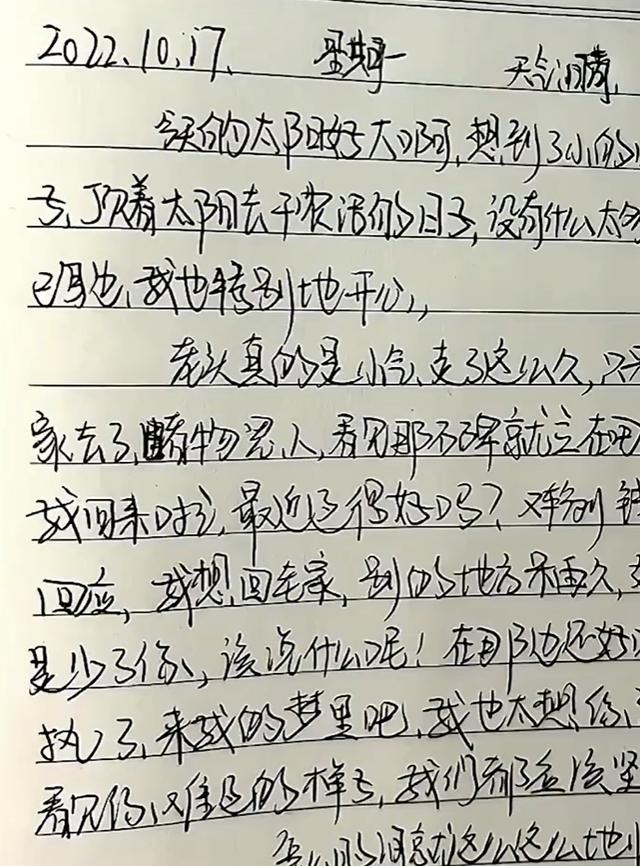 2022.10.17. 星期一 天气晴
今天的太阳好大啊,想到了小的
子,顶着太阳去干农活的日子,没有什么太
已,我也特别地开心,
老头真的是小,走了这么久,只
家去了,睹物思人,看见那就立在
我回来时,最近过得好吗?
回应,我想回老家,别的地方呆再久,
是少了你,该说什么呢!在那边还好
执了,来我的梦里吧,我也太想你,
看见你难过的样子,我们都应该坚
这么这么地